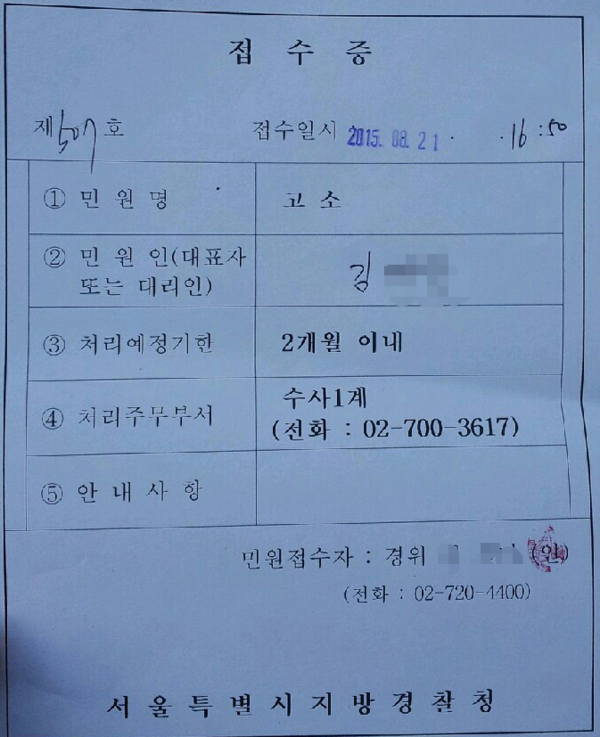 접수증
제507호 접수일시 2015. 08. 21. . 16:50
① 민원명 고소
② 민원인(대표사
또는 대리인) 김
③ 처리예정기한 2개월 이내
④ 처리주무부서 수사1계
(전화 : 02-700-3617)
⑤ 안내사항
민원접수자 : 경위 (인)
(전화 : 02-720-4400)
서울특별시지방경찰청